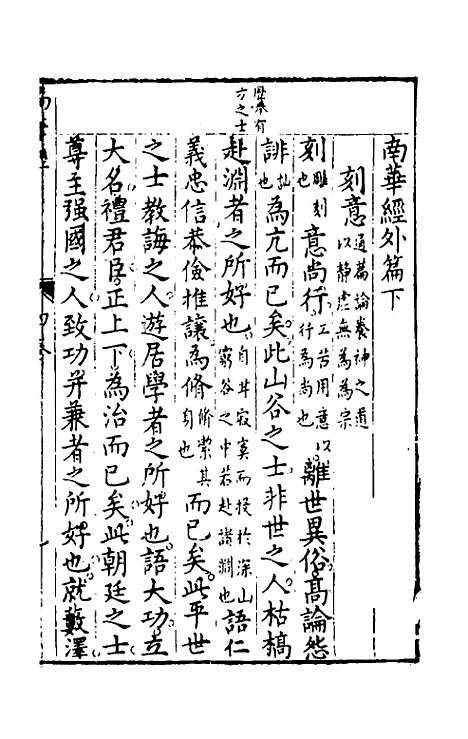 南華經外篇下
刻意通篇論養神之道以静虚無為為宗
刻雕刻也意尚行工苦用意以行為尚也離世異俗髙論怨
誹訕也為亢而已矣此山谷之士非世之人枯槁
赴淵者之所好也自甘寂寞而投於深山窮谷之中若赴諸淵也語仁
義忠信恭儉推讓為脩脩潔其身也而已矣此平世
之士教誨之人遊居學者之所好也語大功立
大名禮君臣正上下為治而已矣此朝廷之士
尊主强國之人致功并兼者之所好也就藪澤
方之士